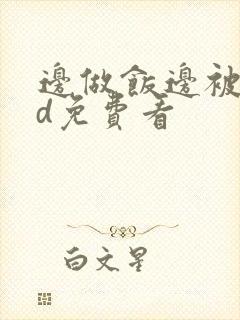 邊做飯邊被
d免費看
白文星